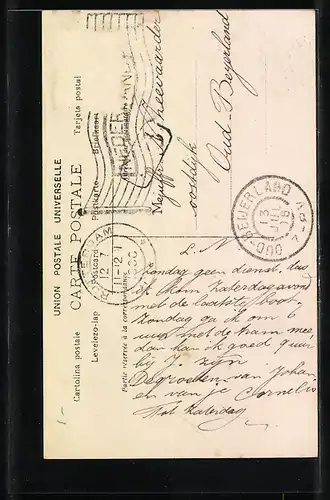 UNION POSTALE UNIVERSELLE
CARTE POSTALE
Cartolina postale Postcard Postkarte Briefkaart Tarjeta postal
Levelezo-lap
Partie réservée à la correspondance
ROTTERDAM
12·7
11-12
OUD-BEIJERLAND
13
JUL
06
Mejuffr
oostdijk
Oud-Beyerland
L. N
Zondag geen dienst, dus
ik kom Zaterdagavond
met de laatste boot.
Zondag ga ik om 6
uur met de tram mee,
dan kan ik goed 9 uur
bij J. zijn
De groeten van Johan
en van je Cornelis
Tot Zaterdag